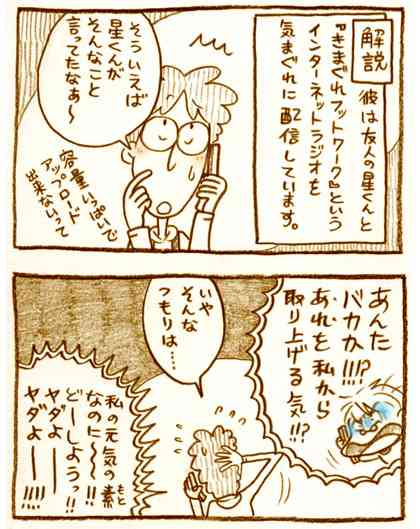 解説
彼は友人の星くんと
『きまぐれフットワーク』という
インターネットラジオを
気まぐれに配信しています。
そういえば
星くんが
そんなこと
言ってたなぁ〜
容量いっぱいで
アップロード
出来ないって
あんた
バカか!!!?
あれを私から
取り上げる気!!?
いや
そんな
つもりは…
私の元気の素
もと
なのに〜〜!!
どーしようっ!!
ヤダよーー
ヤダよーー!!!!